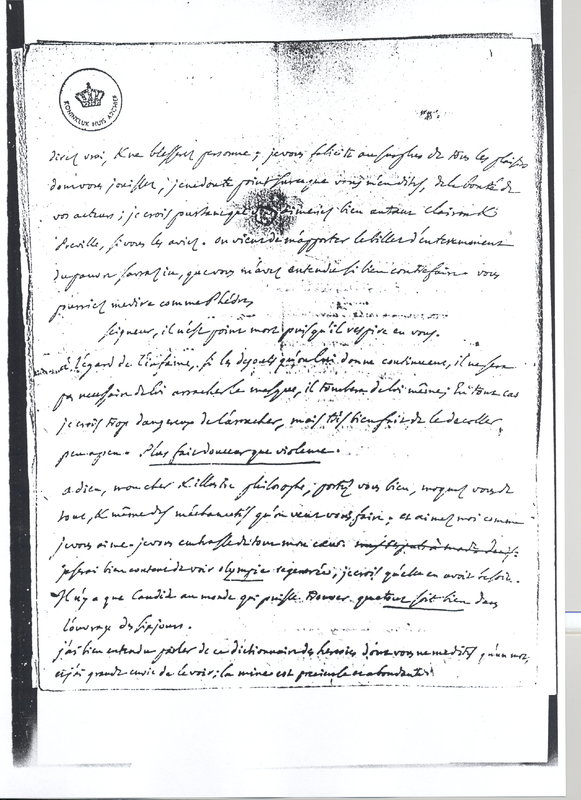 KONINKLIJK HUIS ARCHIEF
direz vrai, & ne blesserez personne; je vous felicite au surplus de tous les plaisirs
dont vous jouissez; je ne doute point sur ce que vous m'en dites, de la bonté de
vos acteurs; je crois pourtant que aimeriez bien autant clairon &
Preville, si vous les aviez. on vient de m'apporter le billet d'enterrement
du pauvre sarrazin, que vous m'avez entendu si bien contrefaire. vous
pourriez me dire comme Phédre,
seigneur, il n'est point mort puisqu'il respire en vous.
à l'égard de l'infame, si les degouts qu'on lui donne continuent, il ne sera
pas necessaire de lui arracher le masque, il tombera de lui même; En tout cas
je crois trop dangereux de l'arracher, mais tres bien fait de le decoller
peu a peu. Plus fait douceur que violence.
adieu, mon cher & illustre philosophe; portez vous bien, moquez vous de
tout, & même des méchancetés qu'on veut vous faire. et aimez moi comme
je vous aime. je vous embrasse de tout mon coeur.
je serai bien content de voir olympie regenerée; je crois qu'elle en avoit besoin.
Il n'y a que Candide au monde qui puisse trouver que tout soit bien dans
l'ouvrage des six jours.
j'ai bien entendu parler de ce dictionnaire des heresies dont vous ne me dites qu'un mot;
et j'ai grande envie de le voir; la mine est precieuse et abondante.